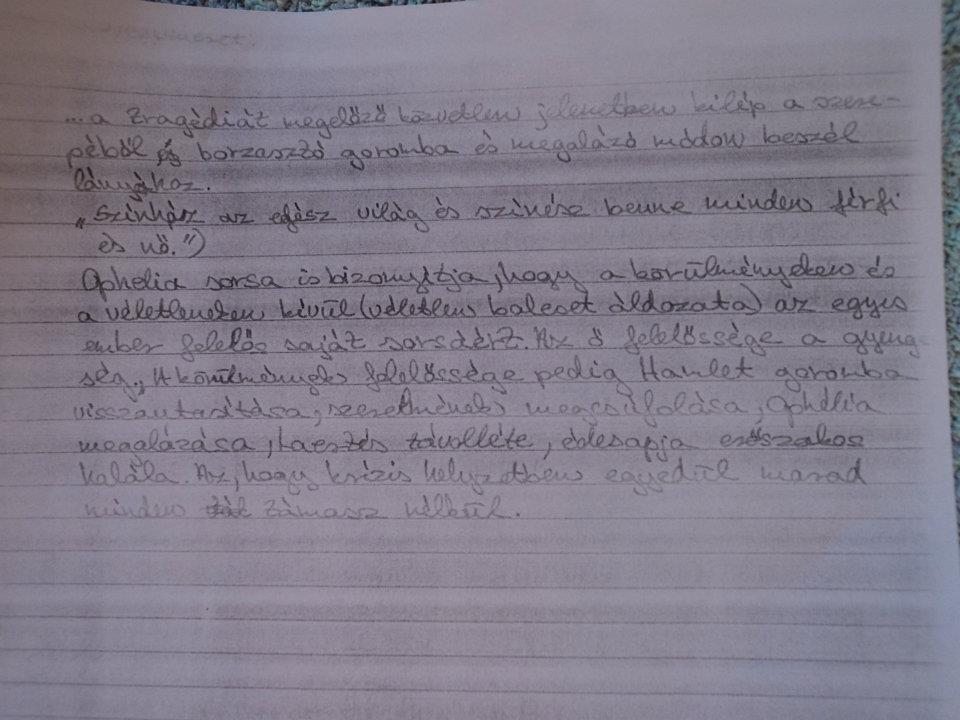 ...a tragédiát megelőző közvetlen jelenetben kilép a szere-
péből és borzasztó goromba és megalázó módon beszél
lányához.
„Színház az egész világ és színész benne minden férfi
és nő.")
Ophelia sorsa is bizonyítja, hogy a körülményeken és
a véletleneken kívül (véletlen baleset áldozata) az egyes
ember felelős saját sorsáért. Az ő felelőssége a gyeng
ség. A körülmények felelőssége pedig Hamlet goromba
visszautasítása, szerelmének megcsúfolása, Ophélia
megalázása, Laertes távolléte, édesapja erőszakos
halála. Az, hogy krízis helyzetben egyedül marad
minden támasz nélkül.